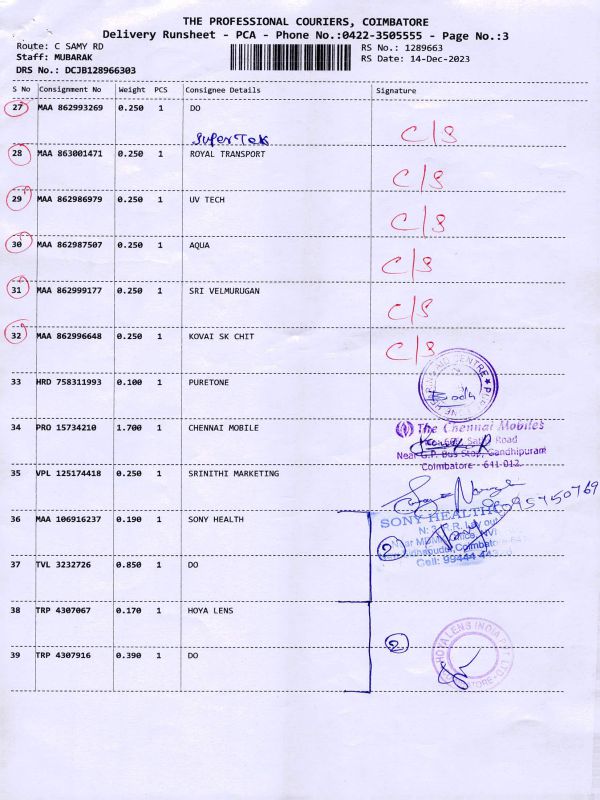 THE PROFESSIONAL COURIERS, COIMBATORE
Delivery Runsheet - PCA - Phone No.:0422-3505555 - Page No.:3
Route: C SAMY RD
RS No.: 1289663
Staff: MUBARAK
RS Date: 14-Dec-2023
DRS No.: DCJB128966303
S No Consignment No Weight PCS Consignee Details Signature
27 MAA 862993269 0.250 1 DO
SuperTek C/S
28 MAA 863001471 0.250 1 ROYAL TRANSPORT C/S
29 MAA 862986979 0.250 1 UV TECH C/S
30 MAA 862987507 0.250 1 AQUA C/S
31 MAA 862999177 0.250 1 SRI VELMURUGAN C/S
32 MAA 862996648 0.250 1 KOVAI SK CHIT C/S
33 HRD 758311993 0.100 1 PURETONE
34 PRO 15734210 1.700 1 CHENNAI MOBILE
The Chennai Mobiles
Road
Near G.P. Bus Stop, Gandhipuram
Coimbatore - 641 012.
35 VPL 125174418 0.250 1 SRINITHI MARKETING
36 MAA 106916237 0.190 1 SONY HEALTH
SONY HEALTH
2
37 TVL 3232726 0.850 1 DO
38 TRP 4307067 0.170 1 HOYA LENS
2
HOYA LENS INDIA PVT LTD
39 TRP 4307916 0.390 1 DO